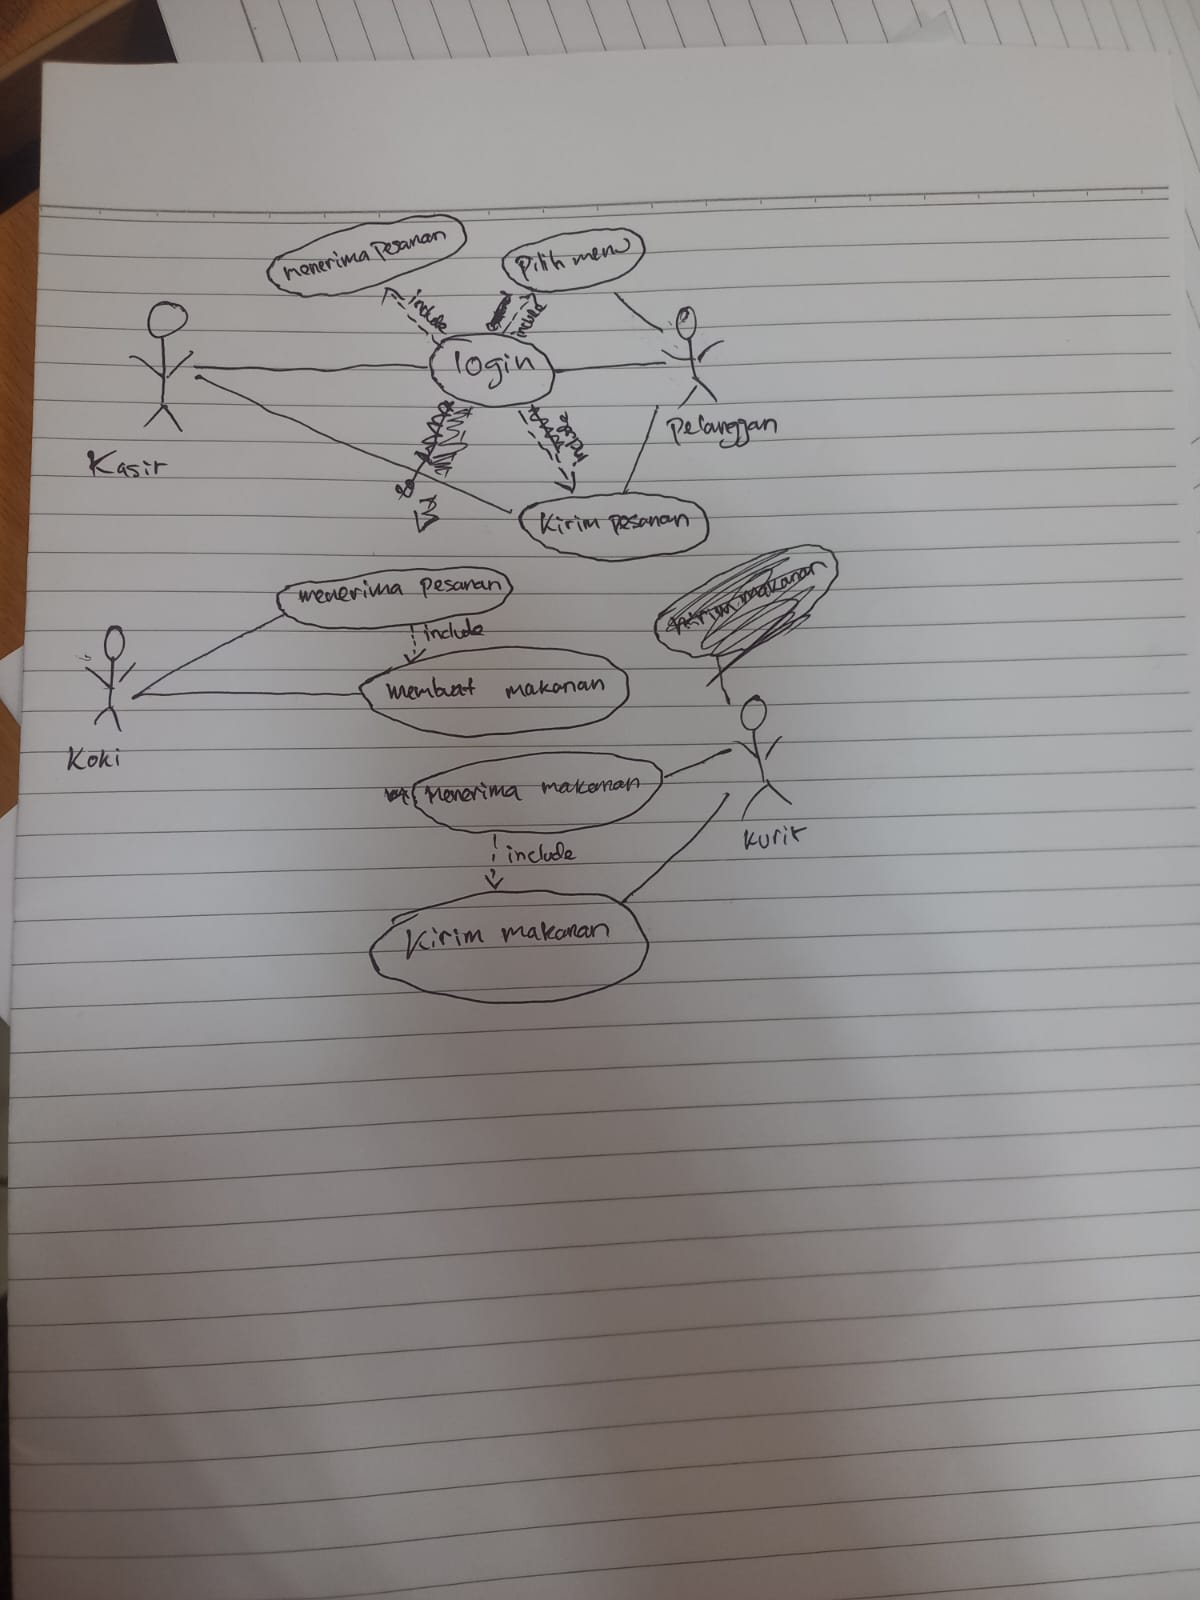 menerima pesanan
Pilih menu
include
include
login
Kasir
Pelanggan
include
Kirim pesanan
menerima pesanan
include
membuat makanan
Koki
kirim makanan
Menerima makanan
Kurir
include
Kirim makanan